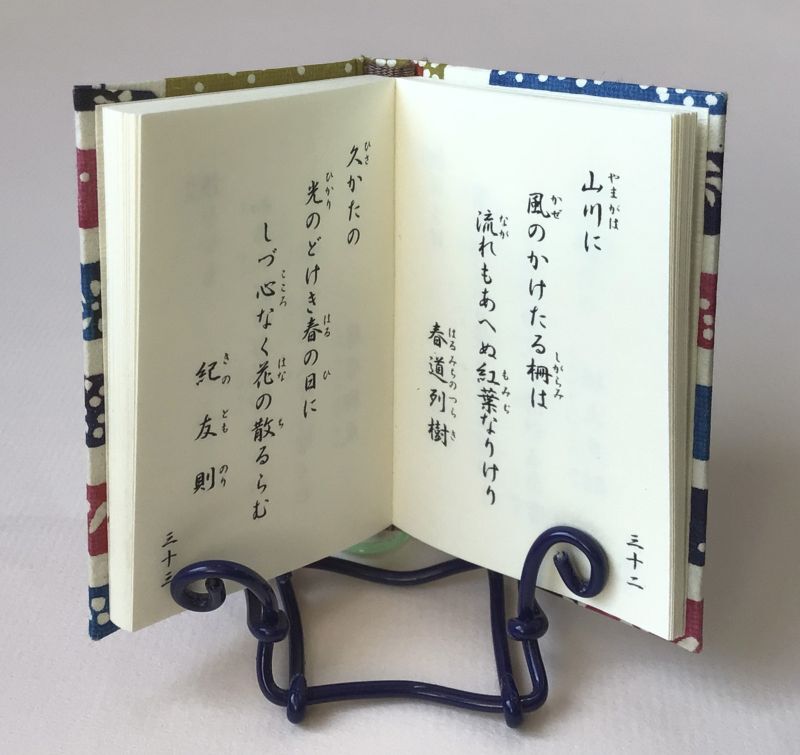 山川に
風のかけたる柵は
流れもあへぬ紅葉なりけり
春道列樹
三十二
久かたの
光のどけき春の日に
しづ心なく花の散るらむ
紀友則
三十三